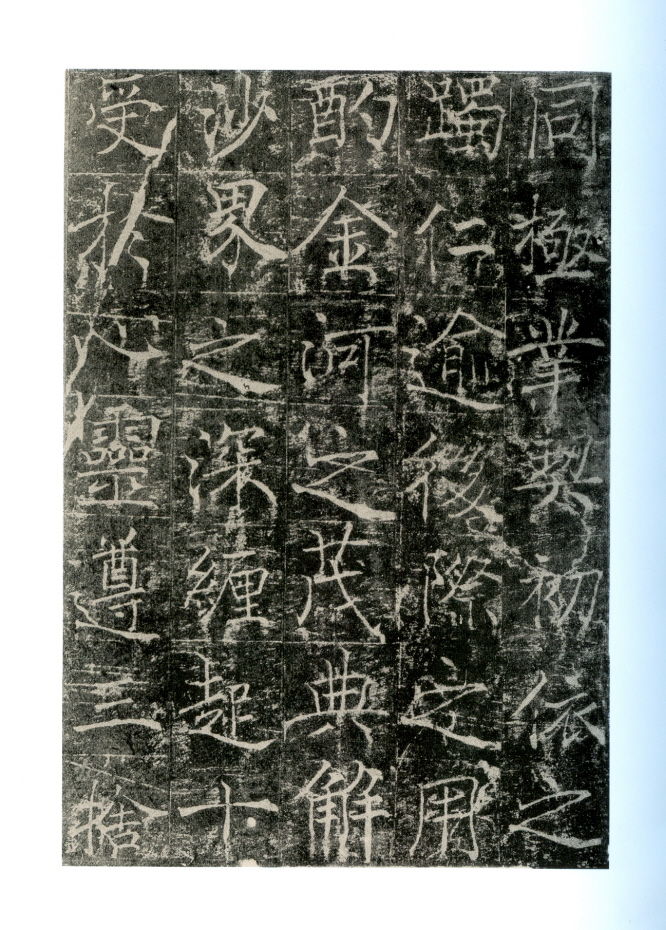 同極契初依之
躅仁逾後際之用
酌金河之茂典解
沙界之深纏起十
受於心靈遵三捨